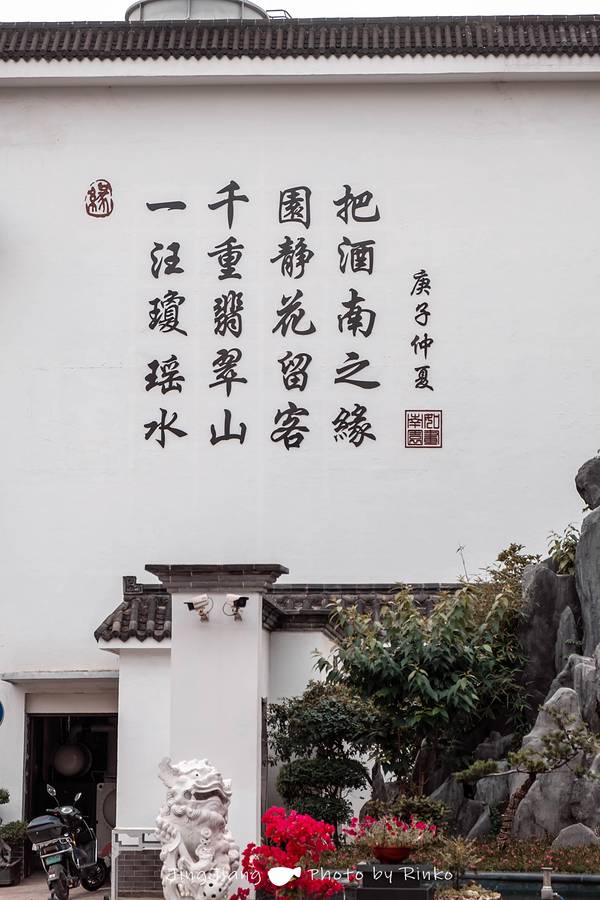 緣
一汪瓊瑤水
千重翡翠山
園靜花留客
把酒南之緣
庚子仲夏
JingJiang Photo by Rinko